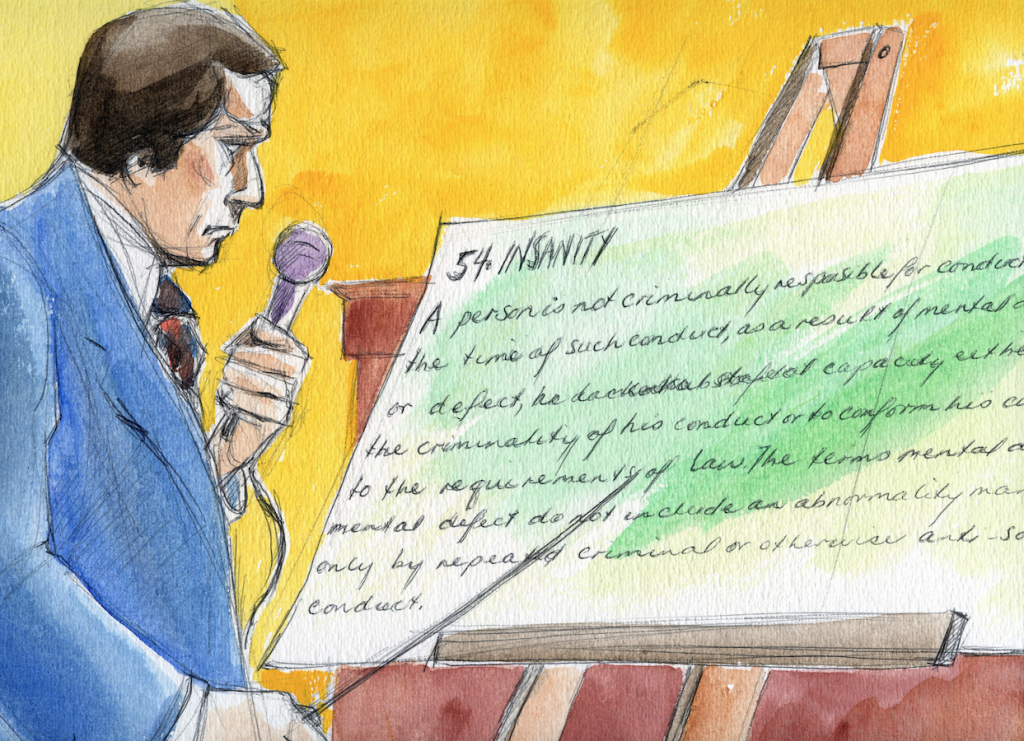 54. INSANITY
A person is not criminally resposible for conduct
the time of such conduct, as a result of mental
or defect, he capacity eithe
the criminality of his conduct or to conform his c
to the requirements of law. The terms mental
mental defect do not include an abnormality man
only by repeated criminal or otherwise anti-so
conduct.